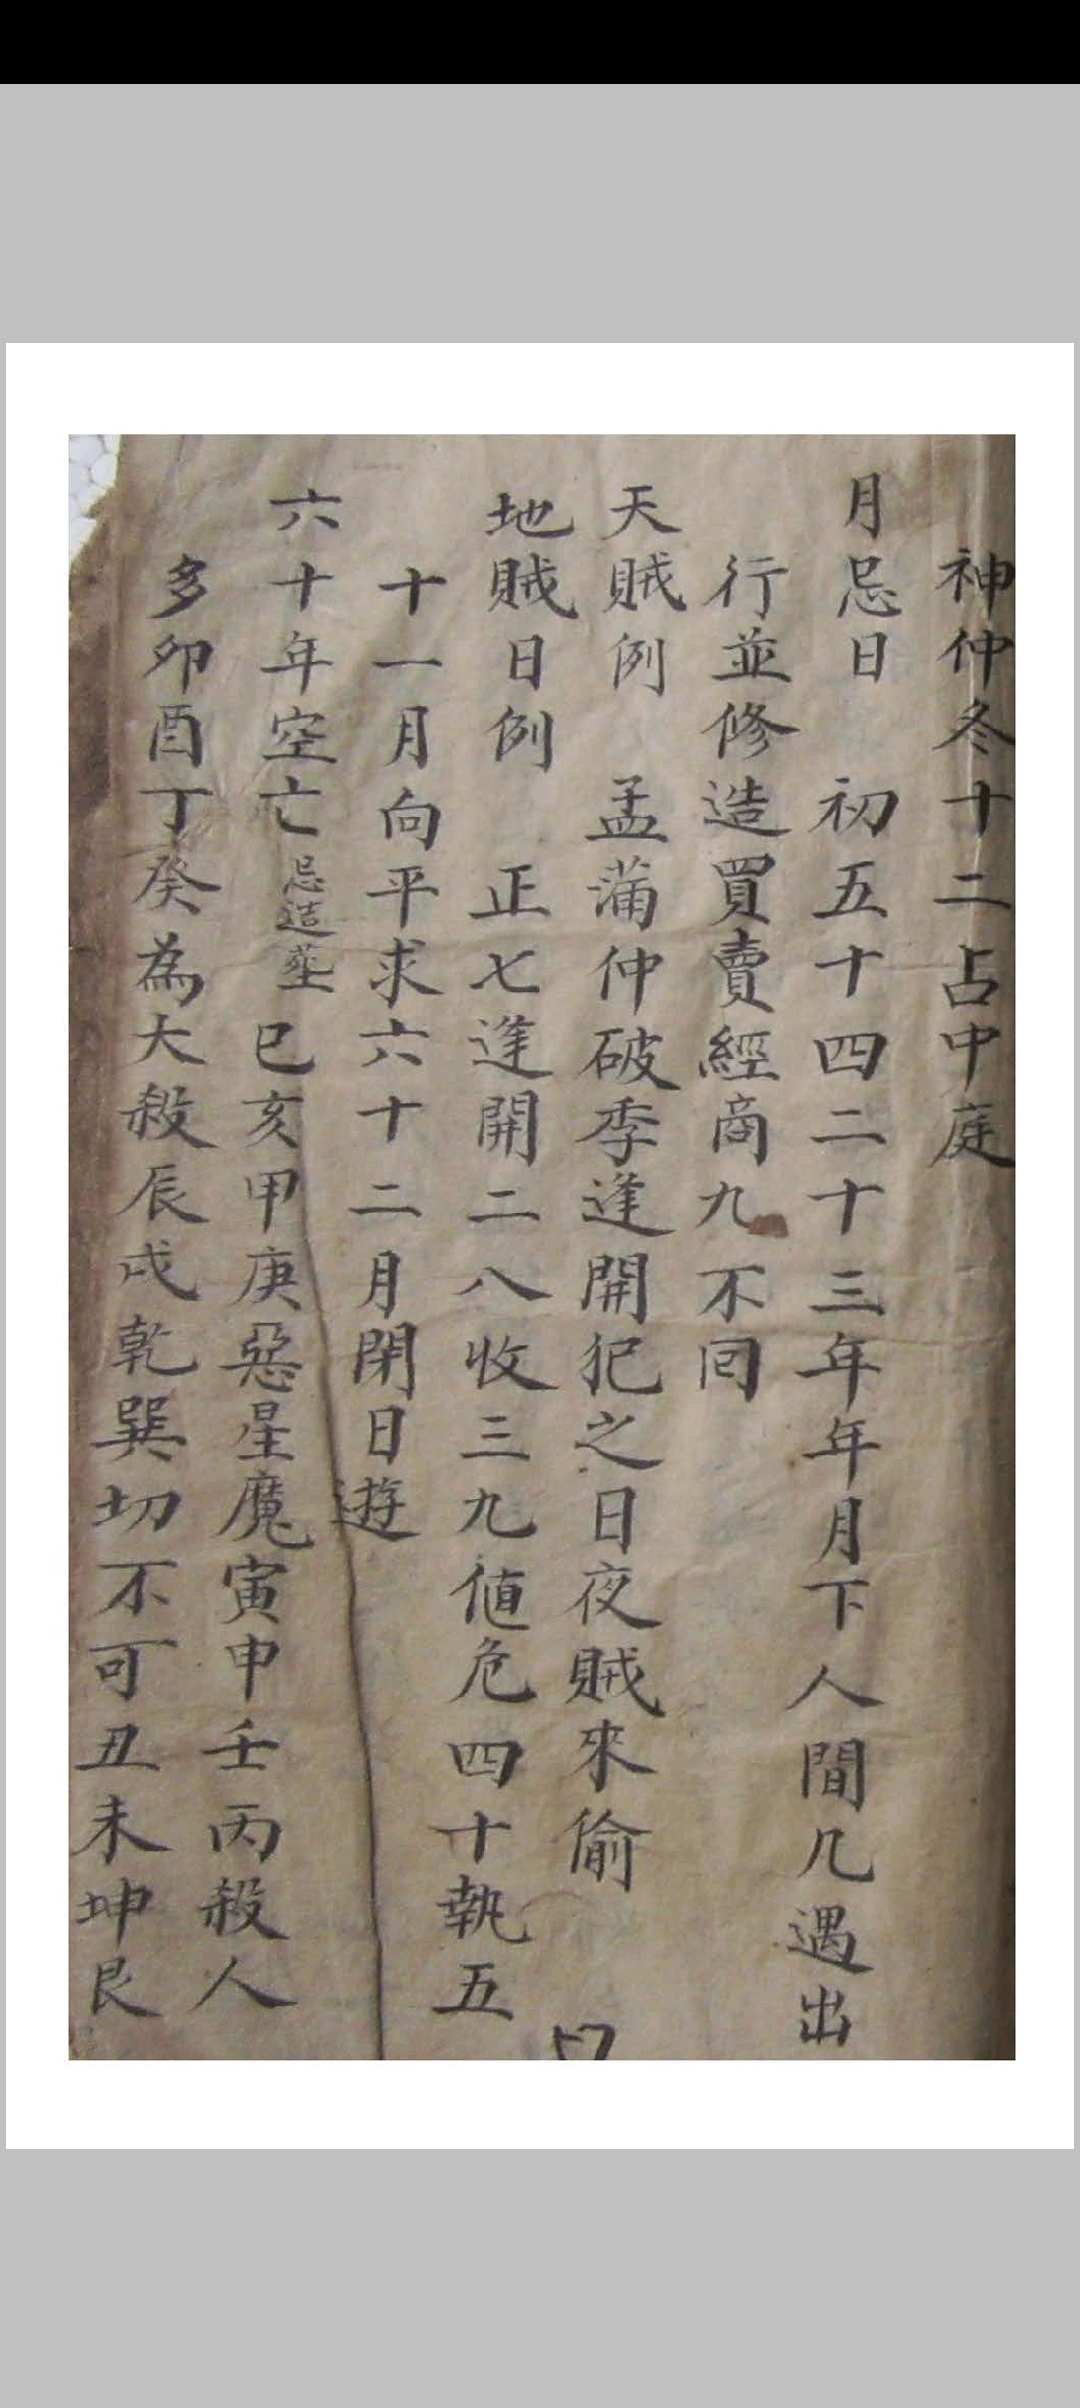 神仲冬十二占中庭
月忌日 初五十四二十三年年月下人間几遇出
行並修造買賣經商九不囘
天賊例 孟蒲仲破季逢開犯之日夜賊來偷
地賊日例 正七逢開二八收三九值危四十執五
十一月向平求六十二月閉日遊
六十年空亡忌造葬 巳亥甲庚惡星魔寅申壬丙殺人
多卯酉丁癸為大殺辰戌乾巽切不可丑未坤艮